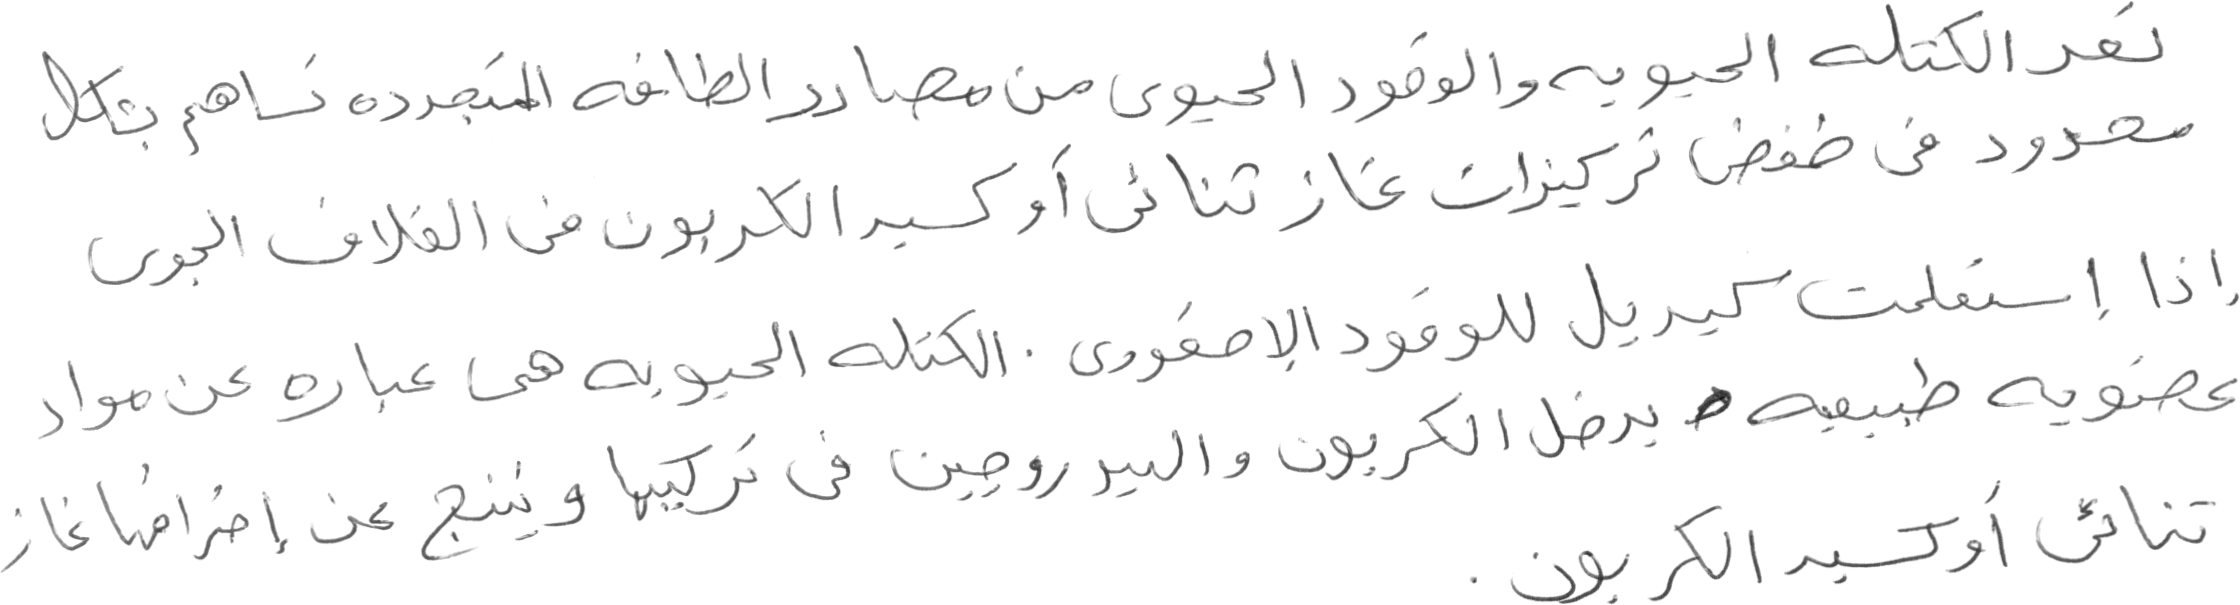 تعد الكتله الحيويه والوقود الحيوى من مصادر الطاقه المتجدده تساهم بشكل
محدود فى خفض تركيزات غاز ثنائى أوكسيد الكربون فى الغلاف الجوى
إذا إستغلت كبديل للوقود الإحفورى . الكتله الحيويه هى عباره عن مواد
عضويه طبيعيه يدخل الكربون والهيدروجين فى تركيبها وينتج عن إحتراقها غاز
ثنائى أوكسيد الكربون .